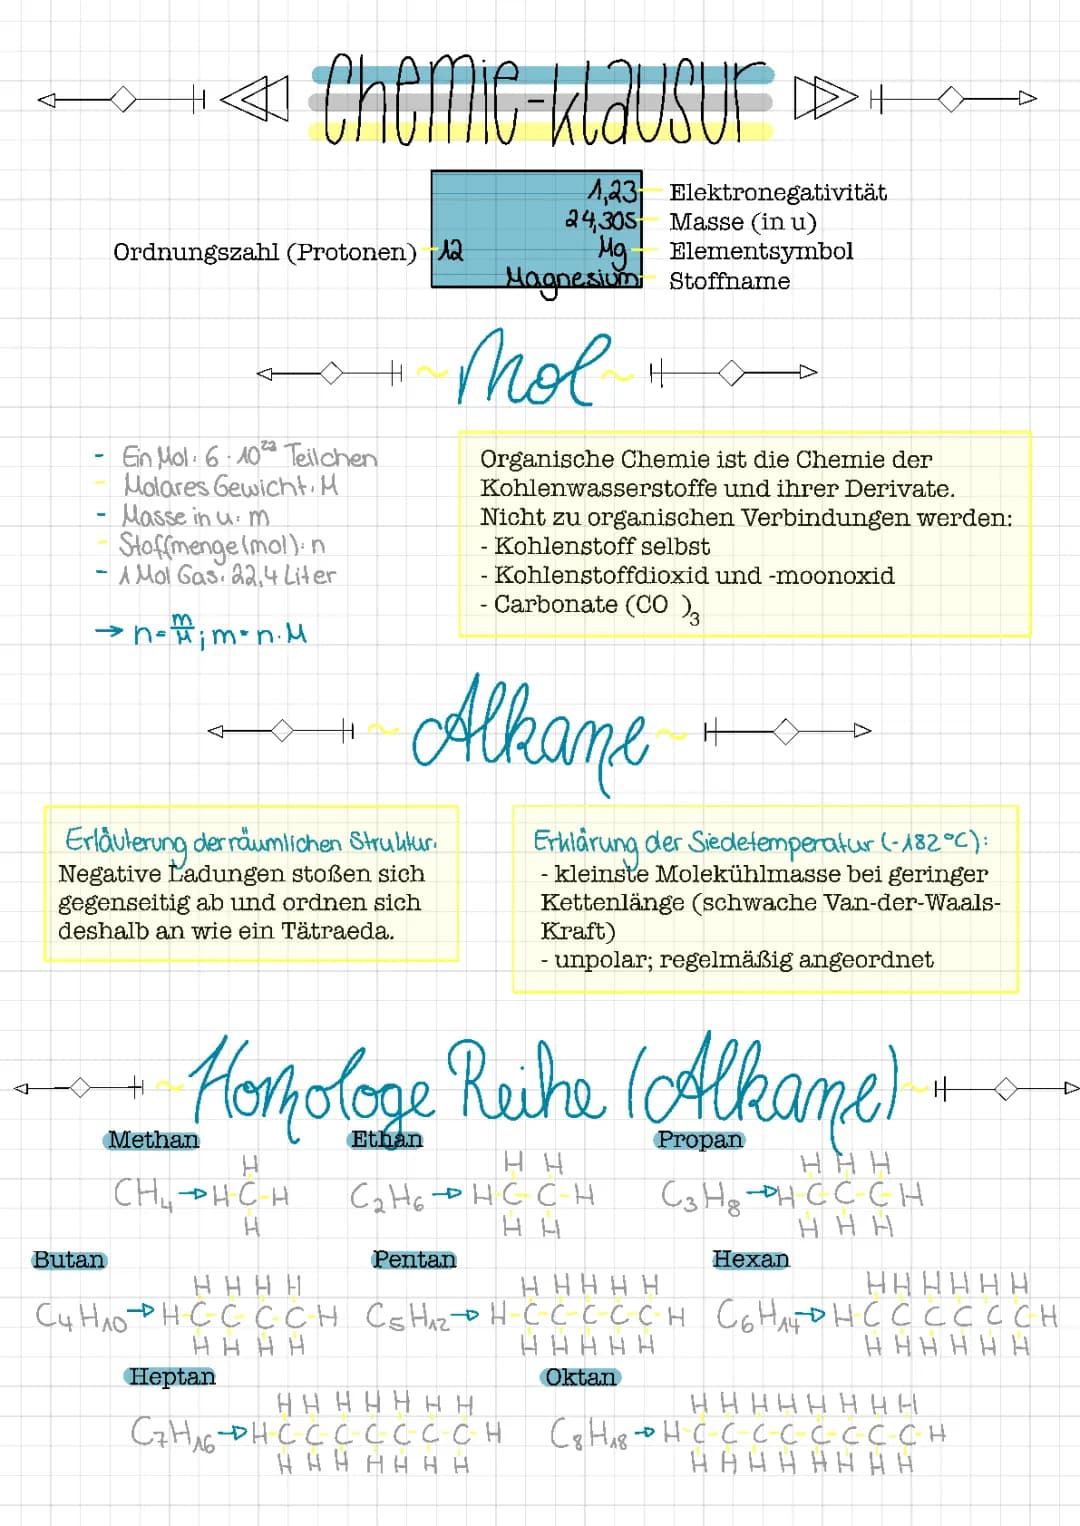 Chemie-Klausur
1,23 Elektronegativität
24,305 Masse (in u)
Ordnungszahl (Protonen) 12 Mg Elementsymbol
Magnesium Stoffname
~Mol~
- Ein Mol: 6 · 10²³ Teilchen
- Molares Gewicht: M
- Masse in u: m
- Stoffmenge (mol): n
- 1 Mol Gas: 22,4 Liter
→ n = m/M ; m = n · M
Organische Chemie ist die Chemie der
Kohlenwasserstoffe und ihrer Derivate.
Nicht zu organischen Verbindungen werden:
- Kohlenstoff selbst
- Kohlenstoffdioxid und -moonoxid
- Carbonate (CO )₃
~Alkane~
Erläuterung der räumlichen Struktur:
Negative Ladungen stoßen sich
gegenseitig ab und ordnen sich
deshalb an wie ein Tätraeda.
Erklärung der Siedetemperatur (-182°C):
- kleinste Molekühlmasse bei geringer
Kettenlänge (schwache Van-der-Waals-
Kraft)
- unpolar; regelmäßig angeordnet
~Homologe Reihe (Alkane)~
Methan Ethan Propan
H H H H H H
CH₄ → H-C-H C₂H₆ → H-C-C-H C₃H₈ → H-C-C-C-H
H H H H H H
Butan Pentan Hexan
H H H H H H H H H H H H H H H
C₄H₁₀ → H-C-C-C-C-H C₅H₁₂ → H-C-C-C-C-C-H C₆H₁₄ → H-C-C-C-C-C-C-H
H H H H H H H H H H H H H H H
Heptan Oktan
H H H H H H H H H H H H H H H
C₇H₁₆ → H-C-C-C-C-C-C-C-H C₈H₁₈ → H-C-C-C-C-C-C-C-C-H
H H H H H H H H H H H H H H H